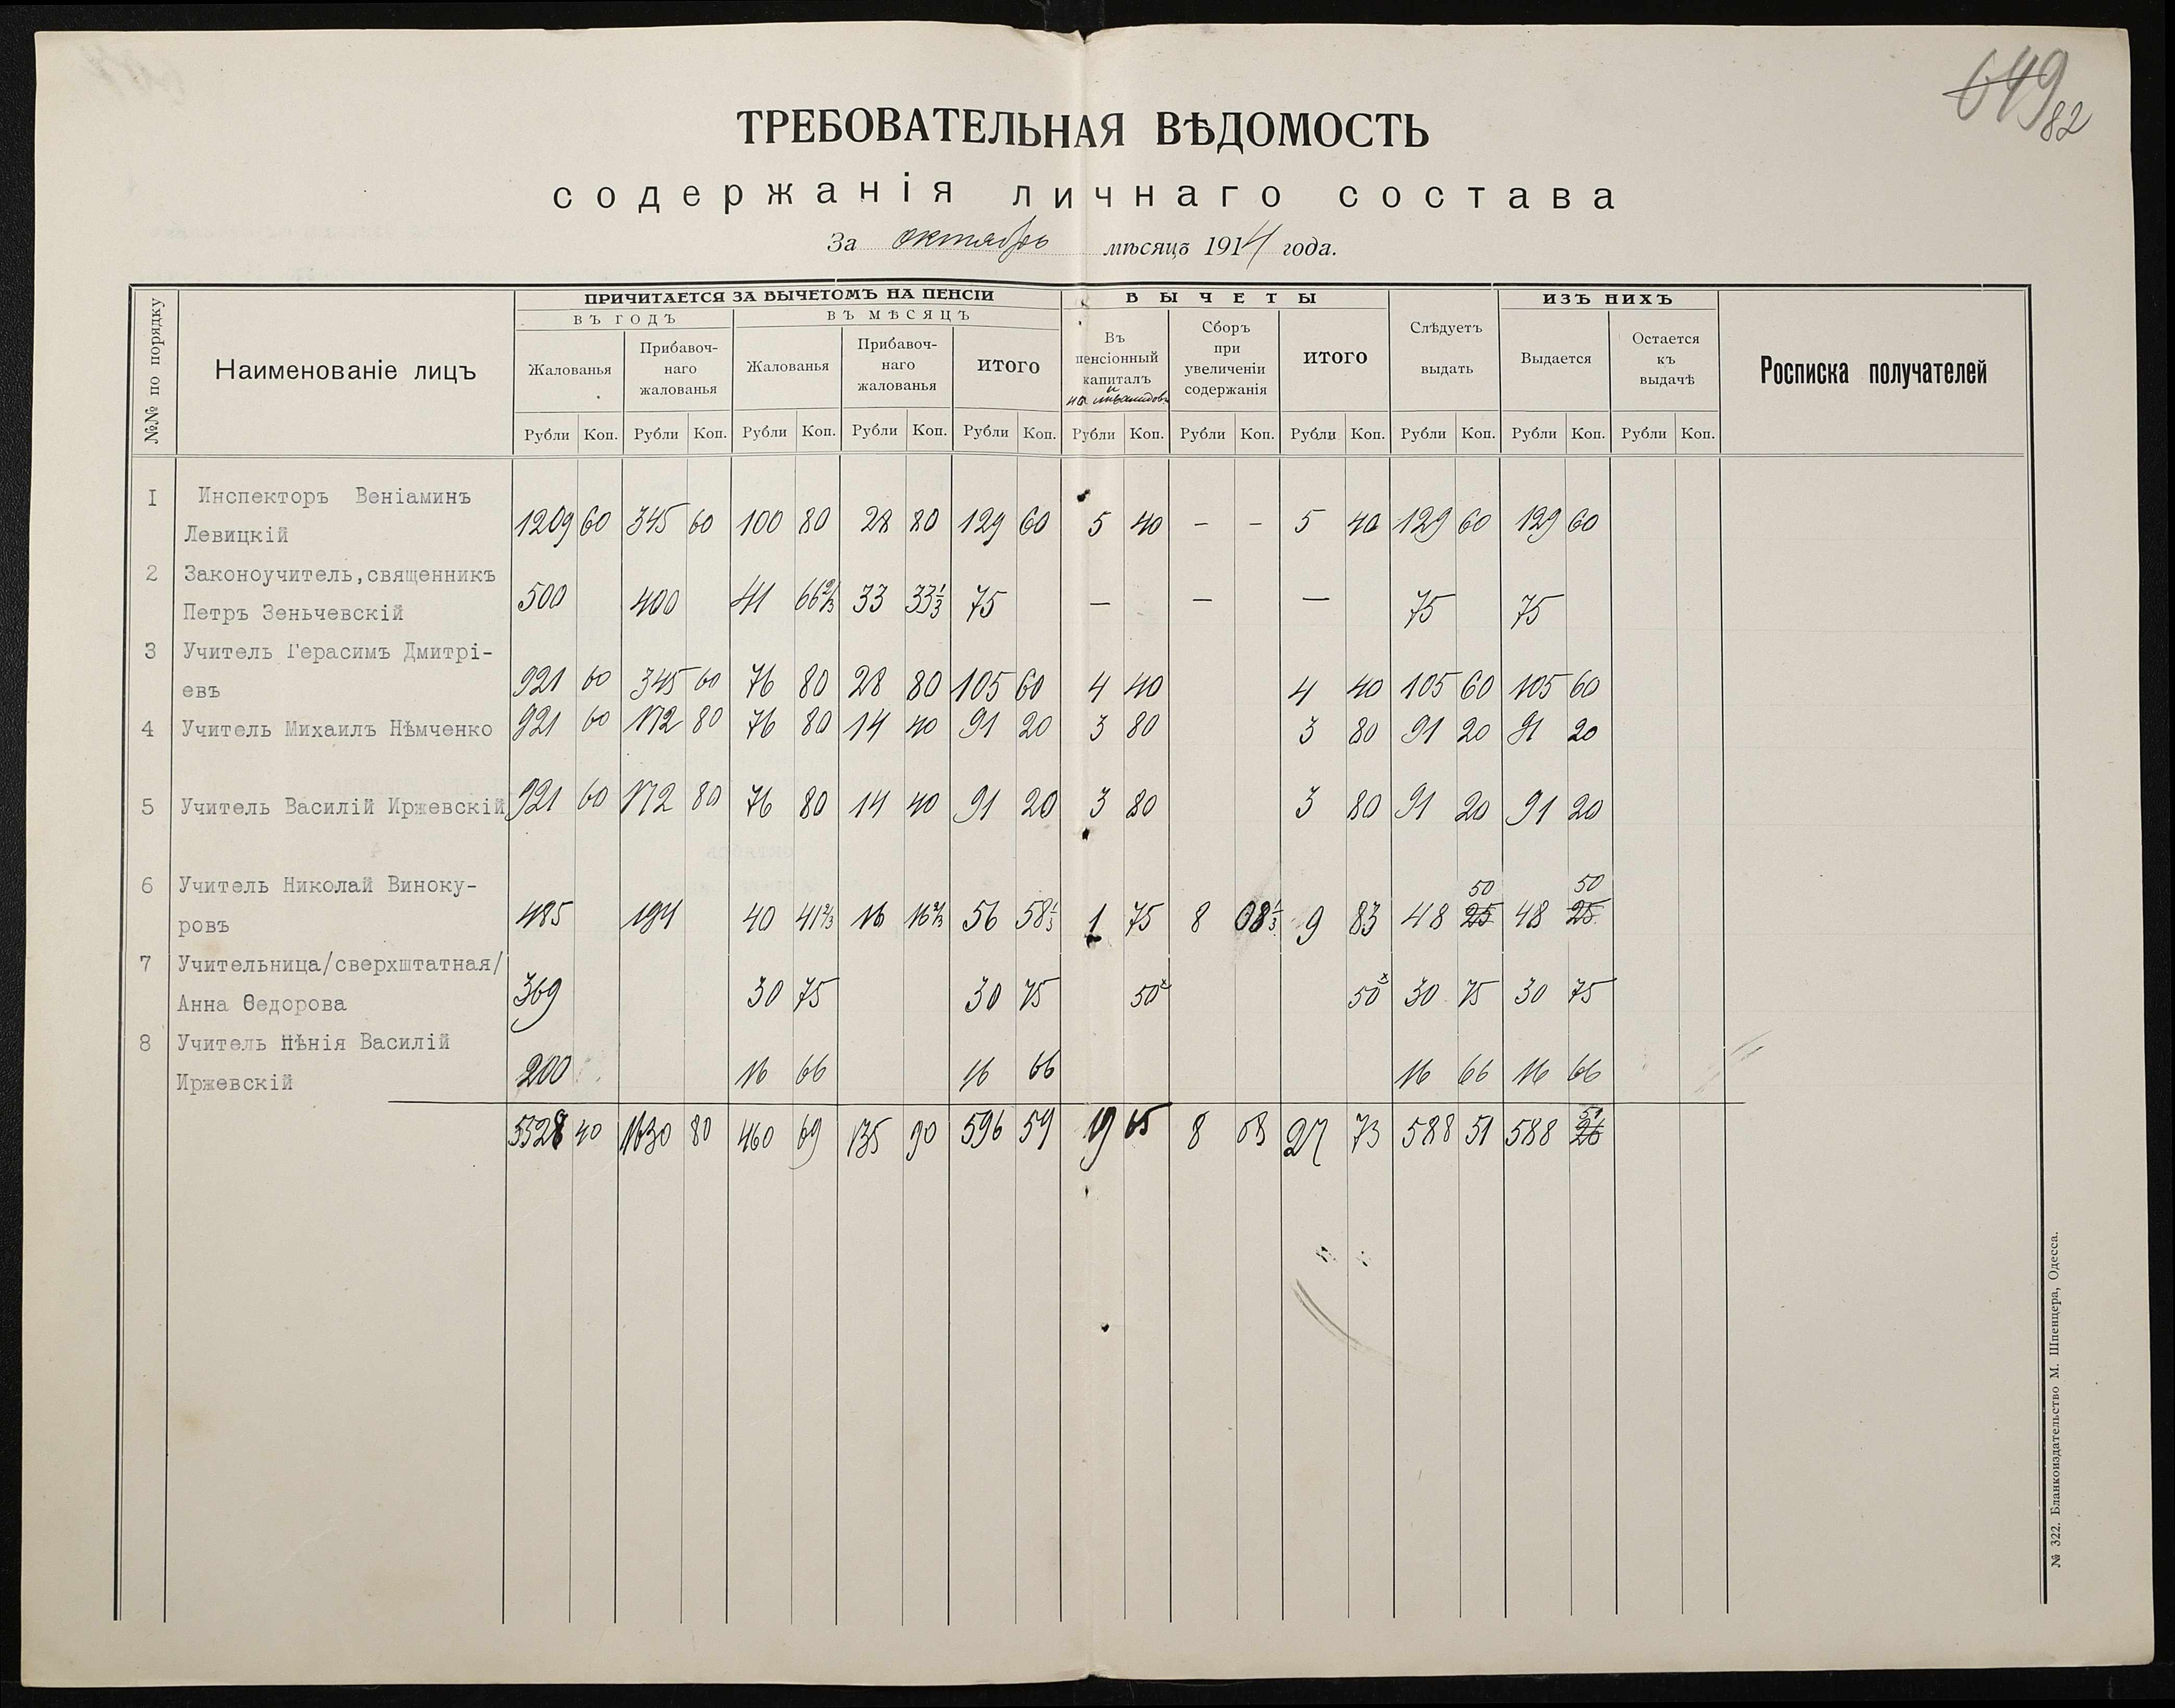 649 82
ТРЕБОВАТЕЛЬНАЯ ВѢДОМОСТЬ
содержанія личнаго состава
За октябрь мѣсяцъ 1914 года.
№№ по порядку
Наименованіе лицъ
ПРИЧИТАЕТСЯ ЗА ВЫЧЕТОМЪ НА ПЕНСІИ
ВЪ ГОДЪ
ВЪ МѢСЯЦЪ
Жалованья
Прибавоч-
наго
жалованья
Жалованья
Прибавоч-
наго
жалованья
ИТОГО
ВЫЧЕТЫ
Въ
пенсіонный
капиталъ
и
на инвалидовъ
Сборъ
при
увеличеніи
содержанія
ИТОГО
Слѣдуетъ
выдать
ИЗЪ НИХЪ
Выдается
Остается
къ
выдачѣ
Росписка получателей
Рубли Коп. Рубли Коп. Рубли Коп. Рубли Коп. Рубли Коп. Рубли Коп. Рубли Коп. Рубли Коп. Рубли Коп. Рубли Коп. Рубли Коп.
I Инспекторъ Веніаминъ
Левицкій 1209 60 345 60 100 80 28 80 129 60 5 40 - - 5 40 129 60 129 60
2 Законоучитель,священникъ
Петръ Зеньчевскій 500 400 41 66 2/3 33 33 1/3 75 — — — 75 75
3 Учитель Герасимъ Дмитрі-
евъ 921 60 345 60 76 80 28 80 105 60 4 40 4 40 105 60 105 60
4 Учитель Михаилъ Нѣмченко 921 60 172 80 76 80 14 40 91 20 3 80 3 80 91 20 91 20
5 Учитель Василій Иржевскій 921 60 172 80 76 80 14 40 91 20 3 80 3 80 91 20 91 20
6 Учитель Николай Виноку-
50 50
ровъ 485 194 40 41 2/3 16 16 2/3 56 58 1/3 1 75 8 08 1/3 9 83 48 25 48 25
7 Учительница/сверхштатная/
Анна Ѳедорова 369 30 75 30 75 50x 50x 30 75 30 75
8 Учитель пѣнія Василій
Иржевскій 200 16 66 16 66 16 66 16 66
51
5528 40 1630 80 460 69 135 90 596 59 19 65 8 08 27 73 588 51 588 26
№ 322. Бланкоиздательство М. Шпенцера, Одесса.